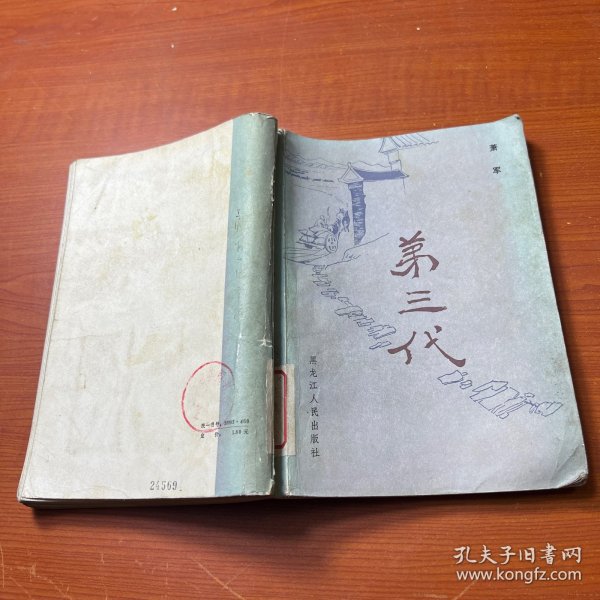 萧军
第三代
黑龙江人民出版社
统一书号：10093·400
定价：1.50元
24569
孔夫子旧书网
www.kongfz.com